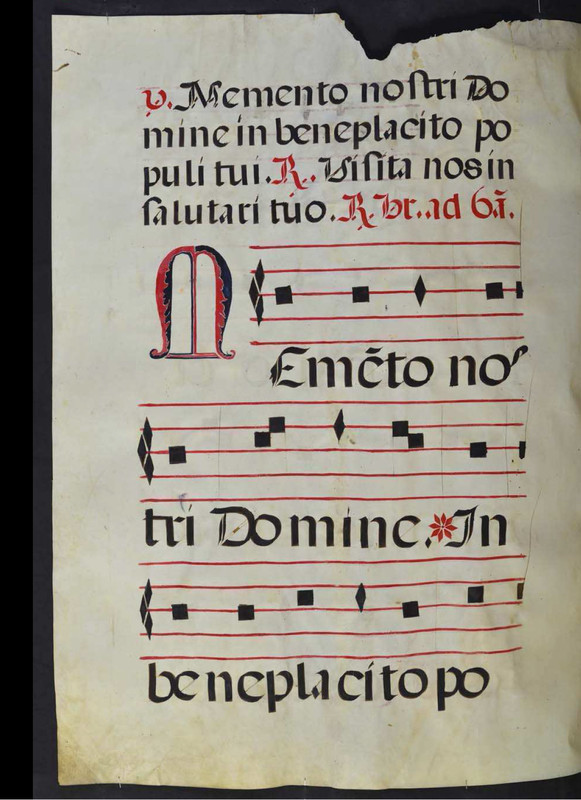 ℣. Memento noſtri Do
mine in beneplacito po
puli tui. ℟. Viſita nos in
ſalutari tuo. ℟. Br. ad 6ā.
MEmēto noſ
tri Domine.*In
beneplacito po